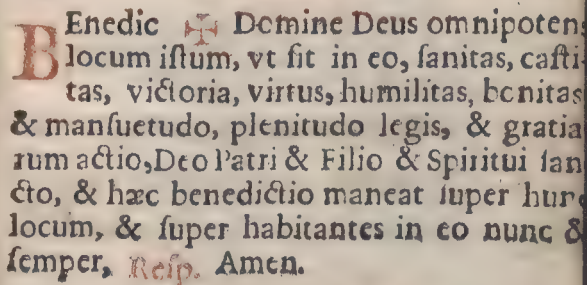 BEnedic ✠ Domine Deus omnipotens
locum iſtum, vt ſit in eo, ſanitas, caſti-
tas, victoria, virtus, humilitas, bonitas
& manſuetudo, plenitudo legis, & gratia
rum actio, Deo Patri & Filio & Spiritui ſan
cto, & hæc benedictio maneat ſuper hunc
locum, & ſuper habitantes in eo nunc &
ſemper, Reſp. Amen.